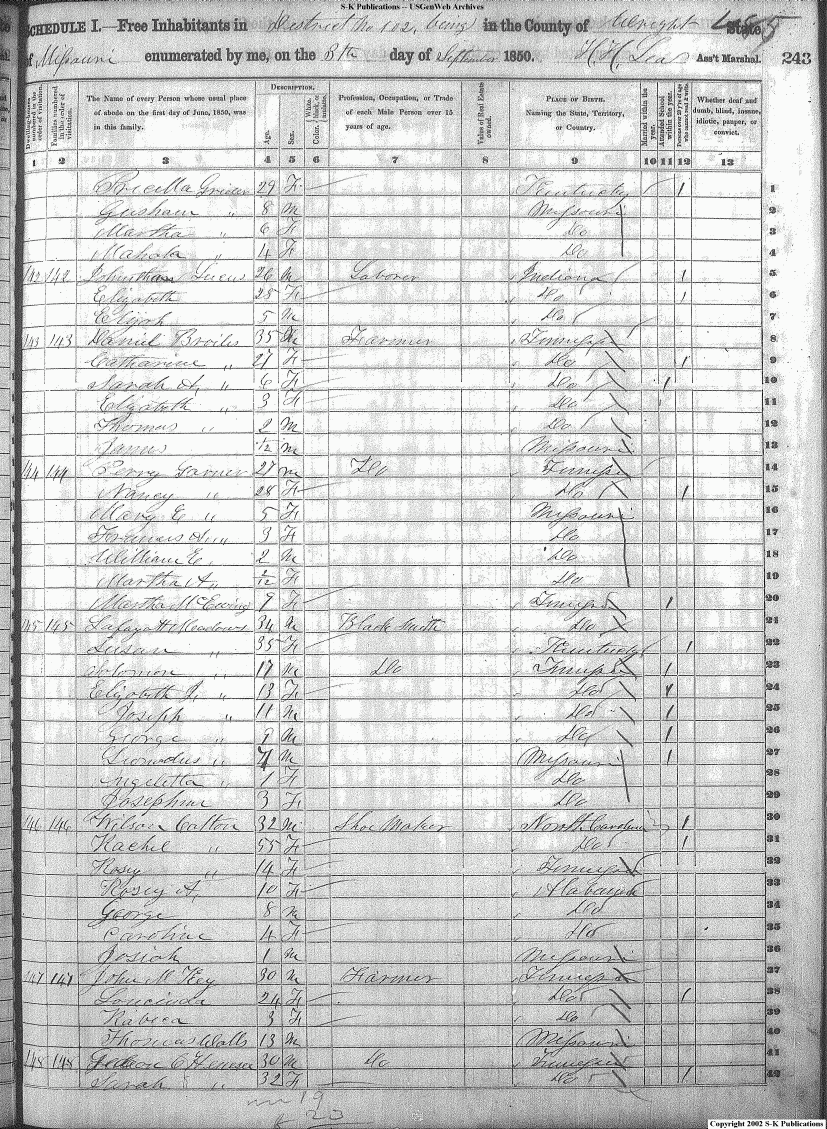 S-K Publications -- USGenWeb Archives
SCHEDULE I.—Free Inhabitants in District No 102, being in the County of Wright State 485
of Missouri enumerated by me, on the 8th day of September 1850. Ass't Marshal. 243
Dwelling-houses numbered in the order of visitation.
Families numbered in the order of visitation.
The Name of every Person whose usual place of abode on the first day of June, 1850, was in this family.
DESCRIPTION.
Age.
Sex.
Color, White, black, or mulatto.
Profession, Occupation, or Trade of each Male Person over 15 years of age.
Value of Real Estate owned.
PLACE OF BIRTH. Naming the State, Territory, or Country.
Married within the year.
Attended School within the year.
Persons over 20 y'rs of age who cannot read & write.
Whether deaf and dumb, blind, insane, idiotic, pauper, or convict.
1 2 3 4 5 6 7 8 9 10 11 12 13
29 F Kentucky 1 1
" 8 M Missouri 2
Martha " 6 F Do 3
Mahala " 4 F Do 4
142 142 Johnathan Lucus 26 M Laborer Indiana 1 5
Elizabeth 28 F Do 1 6
Elijah 5 M Do 7
143 143 Daniel Broiles 35 M Farmer Tennessee 8
Catharine " 27 F Do 1 9
Sarah A. " 6 F Do 1 10
Elizabeth " 3 F Do 11
Thomas " 2 M Do 12
James /12 M Missouri 13
144 144 Perry Garner 27 M Do Tennessee 14
Nancy " 28 F Do 1 15
Mary E " 5 F Missouri 16
Frances A " 3 F Do 17
William E 2 M Do 18
Martha A, /12 F Do 19
Martha McEwing 9 F Tennessee 1 20
145 145 Lafayett Meadows 34 M Black Smith Do 21
Susan " 35 F Kentucky 1 22
Solomon " 17 M Do Tennessee 1 23
Elizabeth J, " 13 F Do 1 24
Joseph " 11 M Do 1 25
George " 9 M Do 1 26
Leonadus " 7 M Missouri 1 27
Angeletta " 1 F Do 28
Josephine 3 F Do 29
146 146 Wilson Catton 32 M Shoe Maker North Carolina 1 30
Rachel " 55 F Do 1 31
Rosey " 14 F Tennessee 32
Rosey A, 10 F Alabama 33
George 8 M Do 34
Caroline 4 F Do 35
Josiah 1 M Missouri 36
147 147 John M Key 30 M Farmer Tennessee 37
Loucinda 24 F Do 1 38
3 F Do 39
Thomas Walls 13 M Missouri 40
148 148 30 M Do Tennessee 41
Sarah " 32 F Do 1 42
19
23
Copyright 2002 S-K Publications